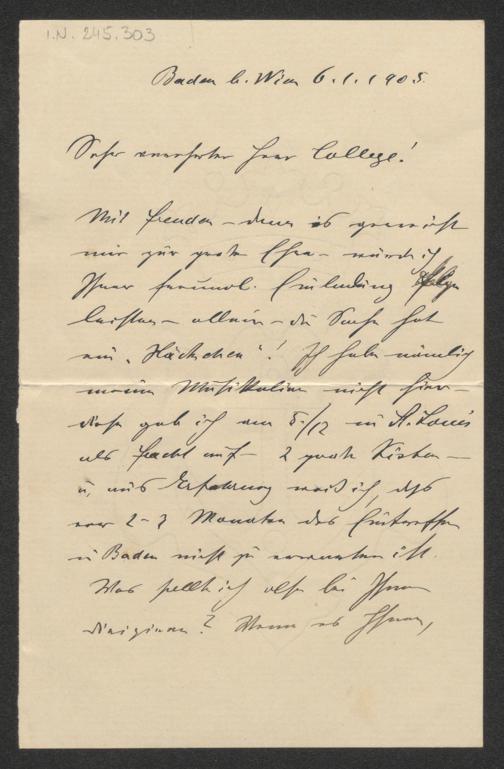 I.N. 245.303
Baden b. Wien 6.1.1905.
Sehr verehrter Herr College!
Mit Freuden – denn es gereicht
mir zur großen Ehre – würde ich
Ihrer freundl. Einladung Folge
leisten – allein – die Sache hat
ein „Häckchen"! Ich habe nämlich
meine Musikalien nicht hier –
diese gab ich am 5./12 in St. Louis
als Fracht auf – 2 große Kisten –
u. aus Erfahrung weiß ich, daß
vor 2–3 Monaten das Eintreffen
in Baden nicht zu erwarten ist.
Was sollt ich also bei Ihnen
dirigieren? Wenn es Ihnen,